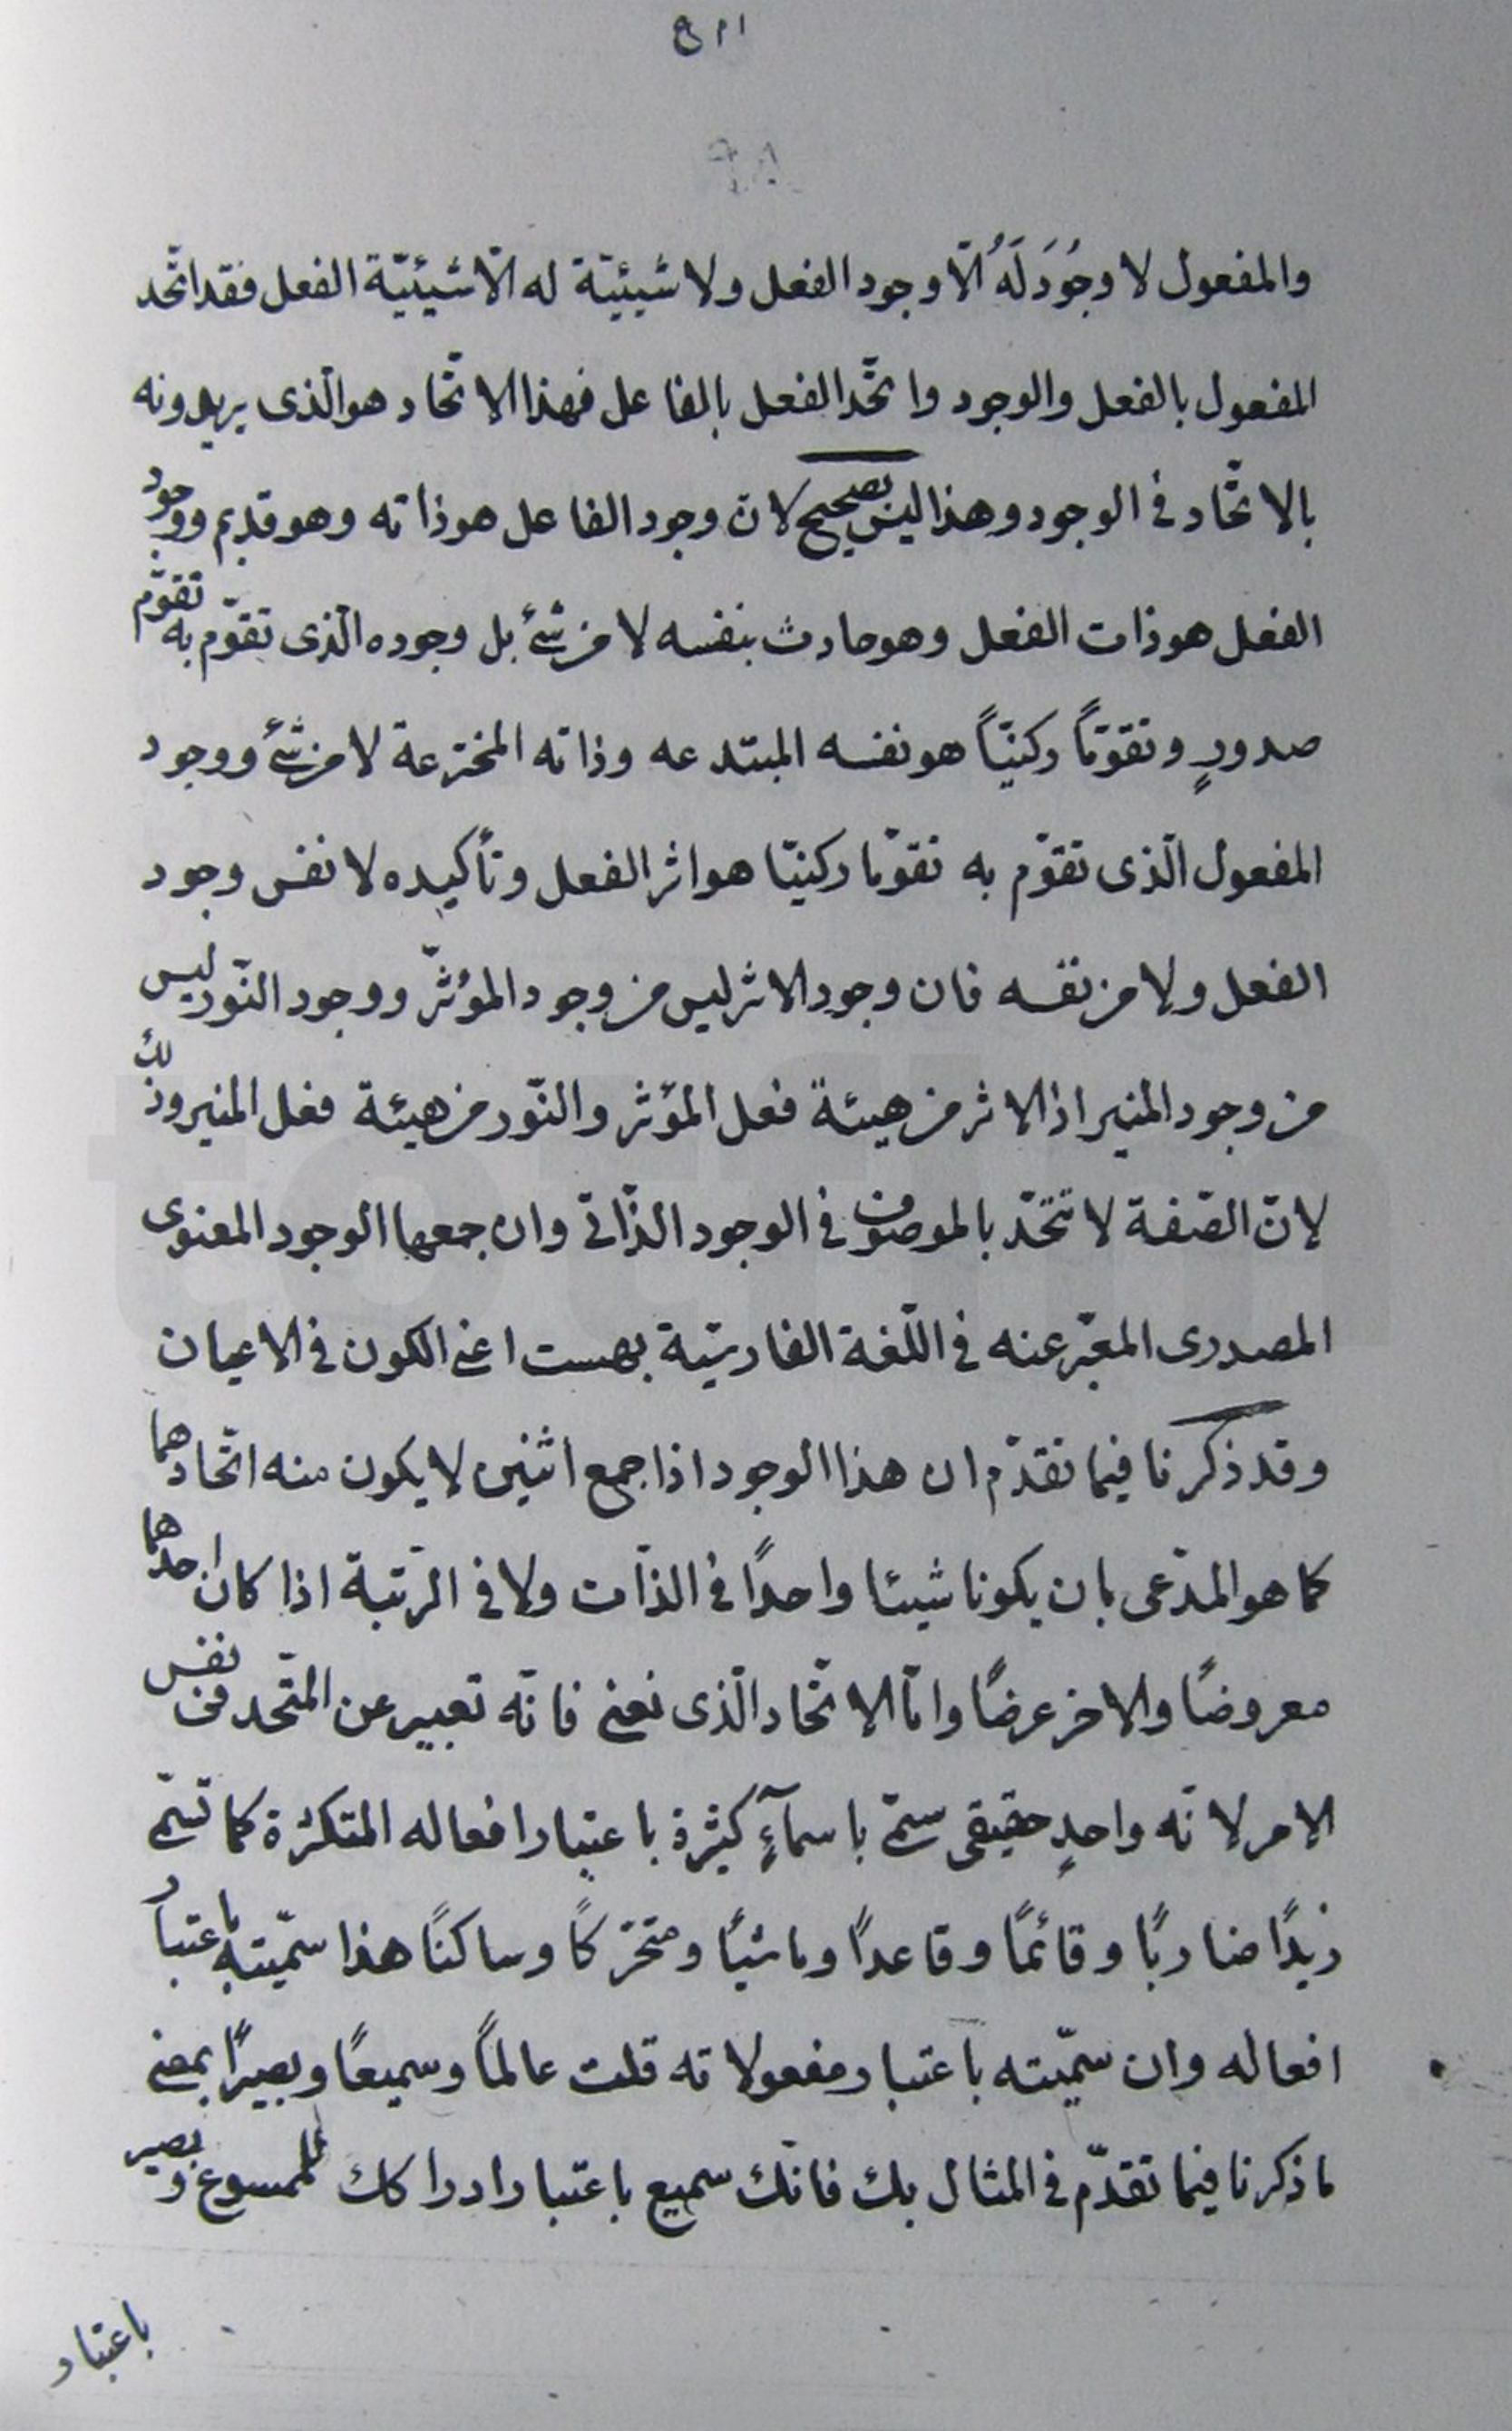 والمفعول لا وجُودَ لَهُ الّا وجود الفعل ولا شيئيّة له الّا شيئيّة الفعل فقد اتّحد
المفعول بالفعل والوجود واتّحد الفعل بالفاعل فهذا الاتّحاد هو الّذى يريدونه
بالاتّحاد فى الوجود وهذا ليس بصحيح لان وجود الفاعل هو ذاته وهو قديم ووجود
الفعل هو ذات الفعل وهو حادث بنفسه لا من شئ بل وجوده الّذى تقوّم به تقوّم
صدورٍ وتقوّماً ركنيّاً هو نفسه المبتدعه وذاته المخترعة لا من شئ ووجود
المفعول الّذى تقوّم به تقوّما ركنيّا هو اثر الفعل وتأكيده لا نفس وجود
الفعل ولا من نفسه فان وجود الاثر ليس من وجود المؤثّر ووجود النّور ليس
من وجود المنير اذ الاثر من هيئة فعل المؤثر والنّور من هيئة فعل المنير وذلك
لانّ الصّفة لا تتّحد بالموصوف فى الوجود الذّاتى وان جمعها الوجود المعنوى
المصدرى المعبّر عنه فى اللّغة الفارسيّة بهست اعنى الكون فى الاعيان
وقد ذكرنا فيما تقدّم ان هذا الوجود اذا جمع اثنين لا يكون منه اتّحادهما
كما هو المدّعى بان يكونا شيئا واحدًا فى الذّات ولا فى الرّتبة اذا كان احدهما
معروضًا والاخر عرضًا وامّا الاتّحاد الّذى نعنى فانّه تعبير عن المتّحد فى نفس
الامر لانّه واحدٍ حقيقى سمّى باسمآءٍ كثيرة باعتبار افعاله المتكثرة كما تسمّى
زيدًا ضاربًا وقائمًا وقاعدًا وماشيًا ومتحرّكًا وساكنًا هذا سمّيته باعتبار
افعاله وان سمّيته باعتبار مفعولاته قلت عالماً وسميعًا وبصيرًا بمعنى
ما ذكرنا فيما تقدّم فى المثال بك فانّك سميع باعتبار ادراكك للمسموع وبصير
باعتبار